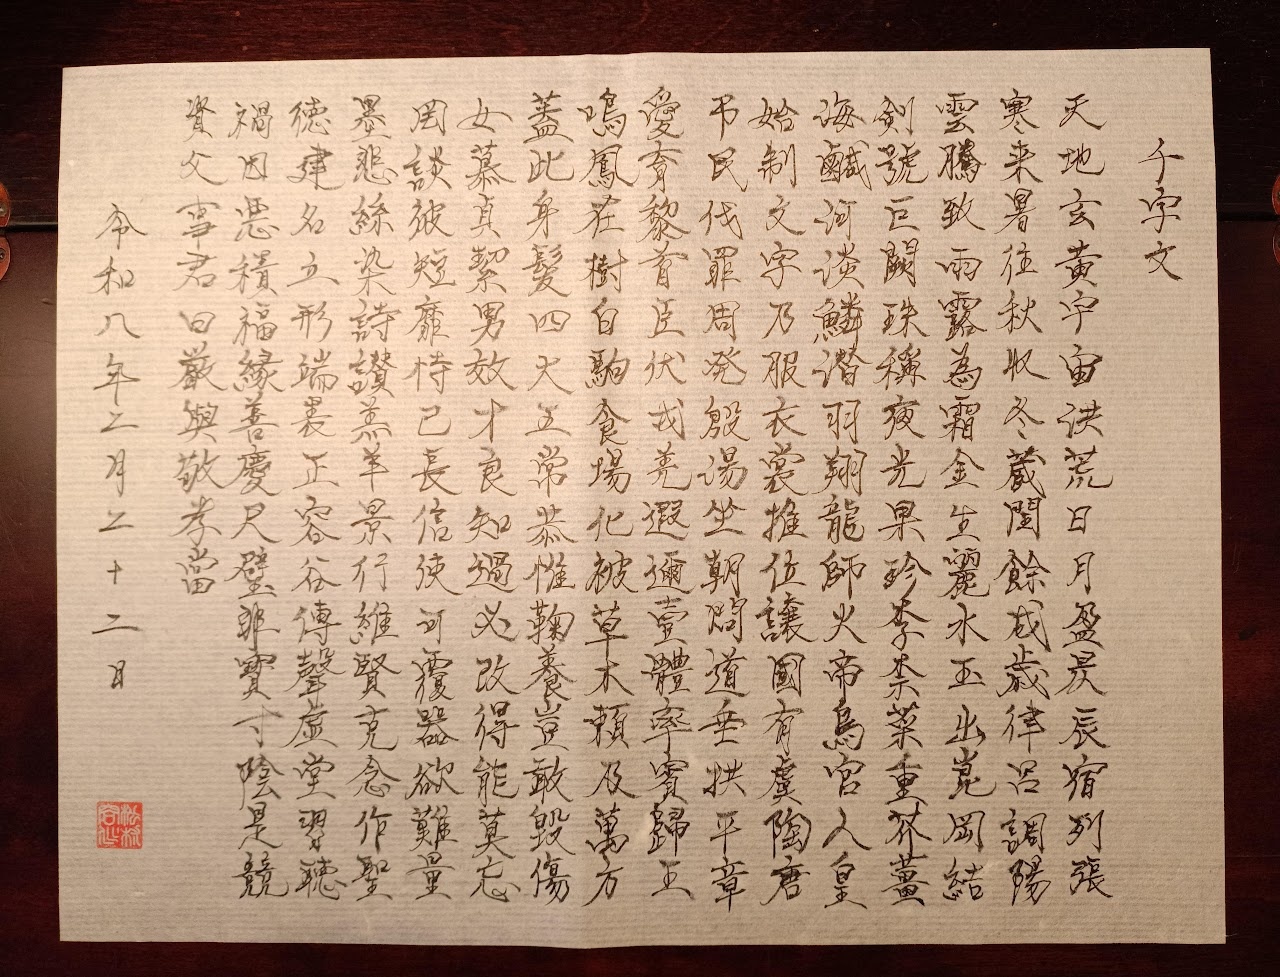 千字文
天地玄黄宇宙洪荒日月盈昃辰宿列張
寒来暑往秋収冬蔵閏餘成歳律呂調陽
雲騰致雨露為霜金生麗水玉出崑岡結
剣號巨闕珠稱夜光果珍李柰菜重芥薑
海鹹河淡鱗潜羽翔龍師火帝鳥官人皇
始制文字乃服衣裳推位譲國有虞陶唐
弔民伐罪周発殷湯坐朝問道垂拱平章
愛育黎首臣伏戎羌遐邇壹體率賓歸王
鳴鳳在樹白駒食場化被草木頼及萬方
蓋此身髪四大五常恭惟鞠養豈敢毀傷
女慕貞絜男效才良知過必改得能莫忘
罔談彼短靡恃己長信使可覆器欲難量
墨悲絲染詩讃羔羊景行維賢克念作聖
徳建名立形端表正容谷傳聲虚堂習聽
禍因悪積福縁善慶尺璧非寶寸陰是競
資父事君曰厳與敬孝當
令和八年二月二十二日